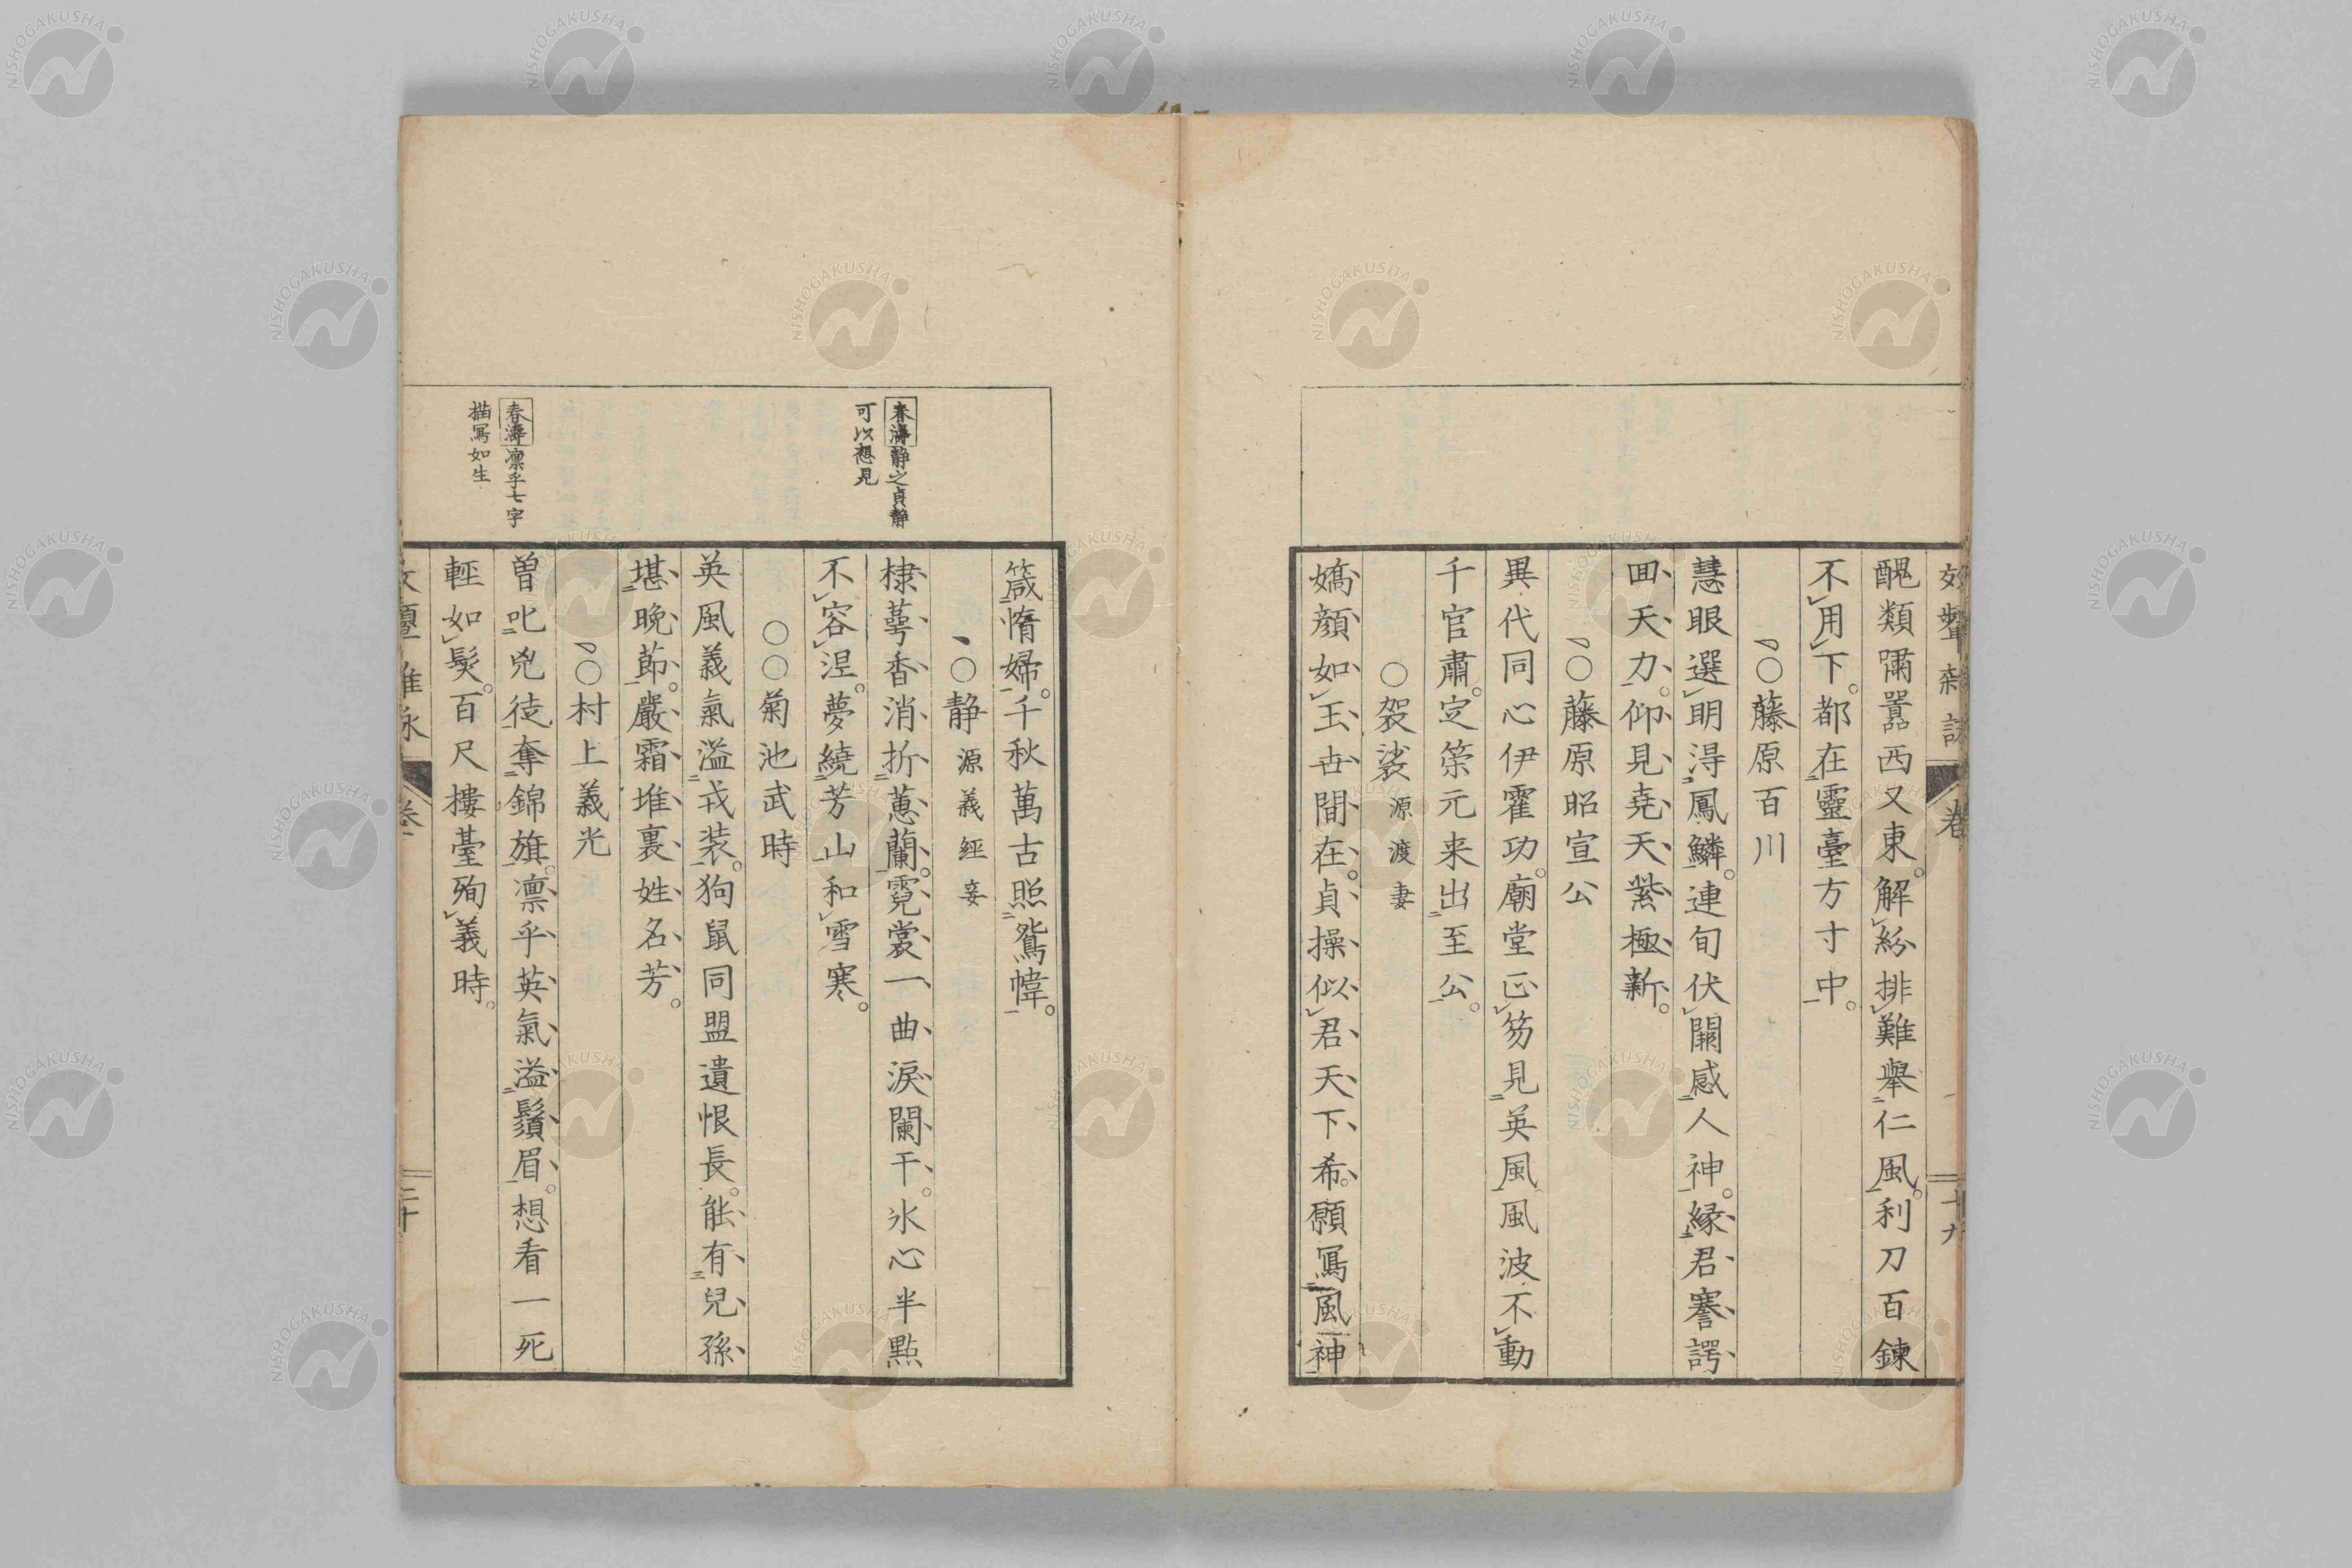 醜類嘯嚚西又東。解紛排難舉仁風。利刀百鍊
不用下。都在靈臺方寸中。
〇藤原百川
慧眼選明淂鳳鱗。連旬伏闕感人神。緣君謇諤
回天力。仰見堯天紫極新。
〇藤原昭宣公
異代同心伊霍功。廟堂正笏見英風風波不動
千官肅。定策元来出至公。
〇袈裟 源渡妻
嬌顏如玉世間在。貞操似君天下希。願寫風神
箴惰婦。千秋萬古照鴛幃。
〇静 源義經妾
棣萼香消折蕙蘭。霓裳一曲淚闌干。氷心半點
不容涅。夢繞芳山和雪寒。
〇〇菊池武時
英風義氣溢戎装。狗鼠同盟遺恨長。能有兒孫
堪晚節。嚴霜堆裏姓名芳。
〇村上義光
曽叱兇徒奪錦旗。凛乎英氣溢鬚眉。想看一死
輕如髮。百尺樓臺殉義時。
春濤静之貞静
可以想見
春濤凛乎七字
描寫如生
卷
十九
卷一
二十
NISHOGAKUSHA